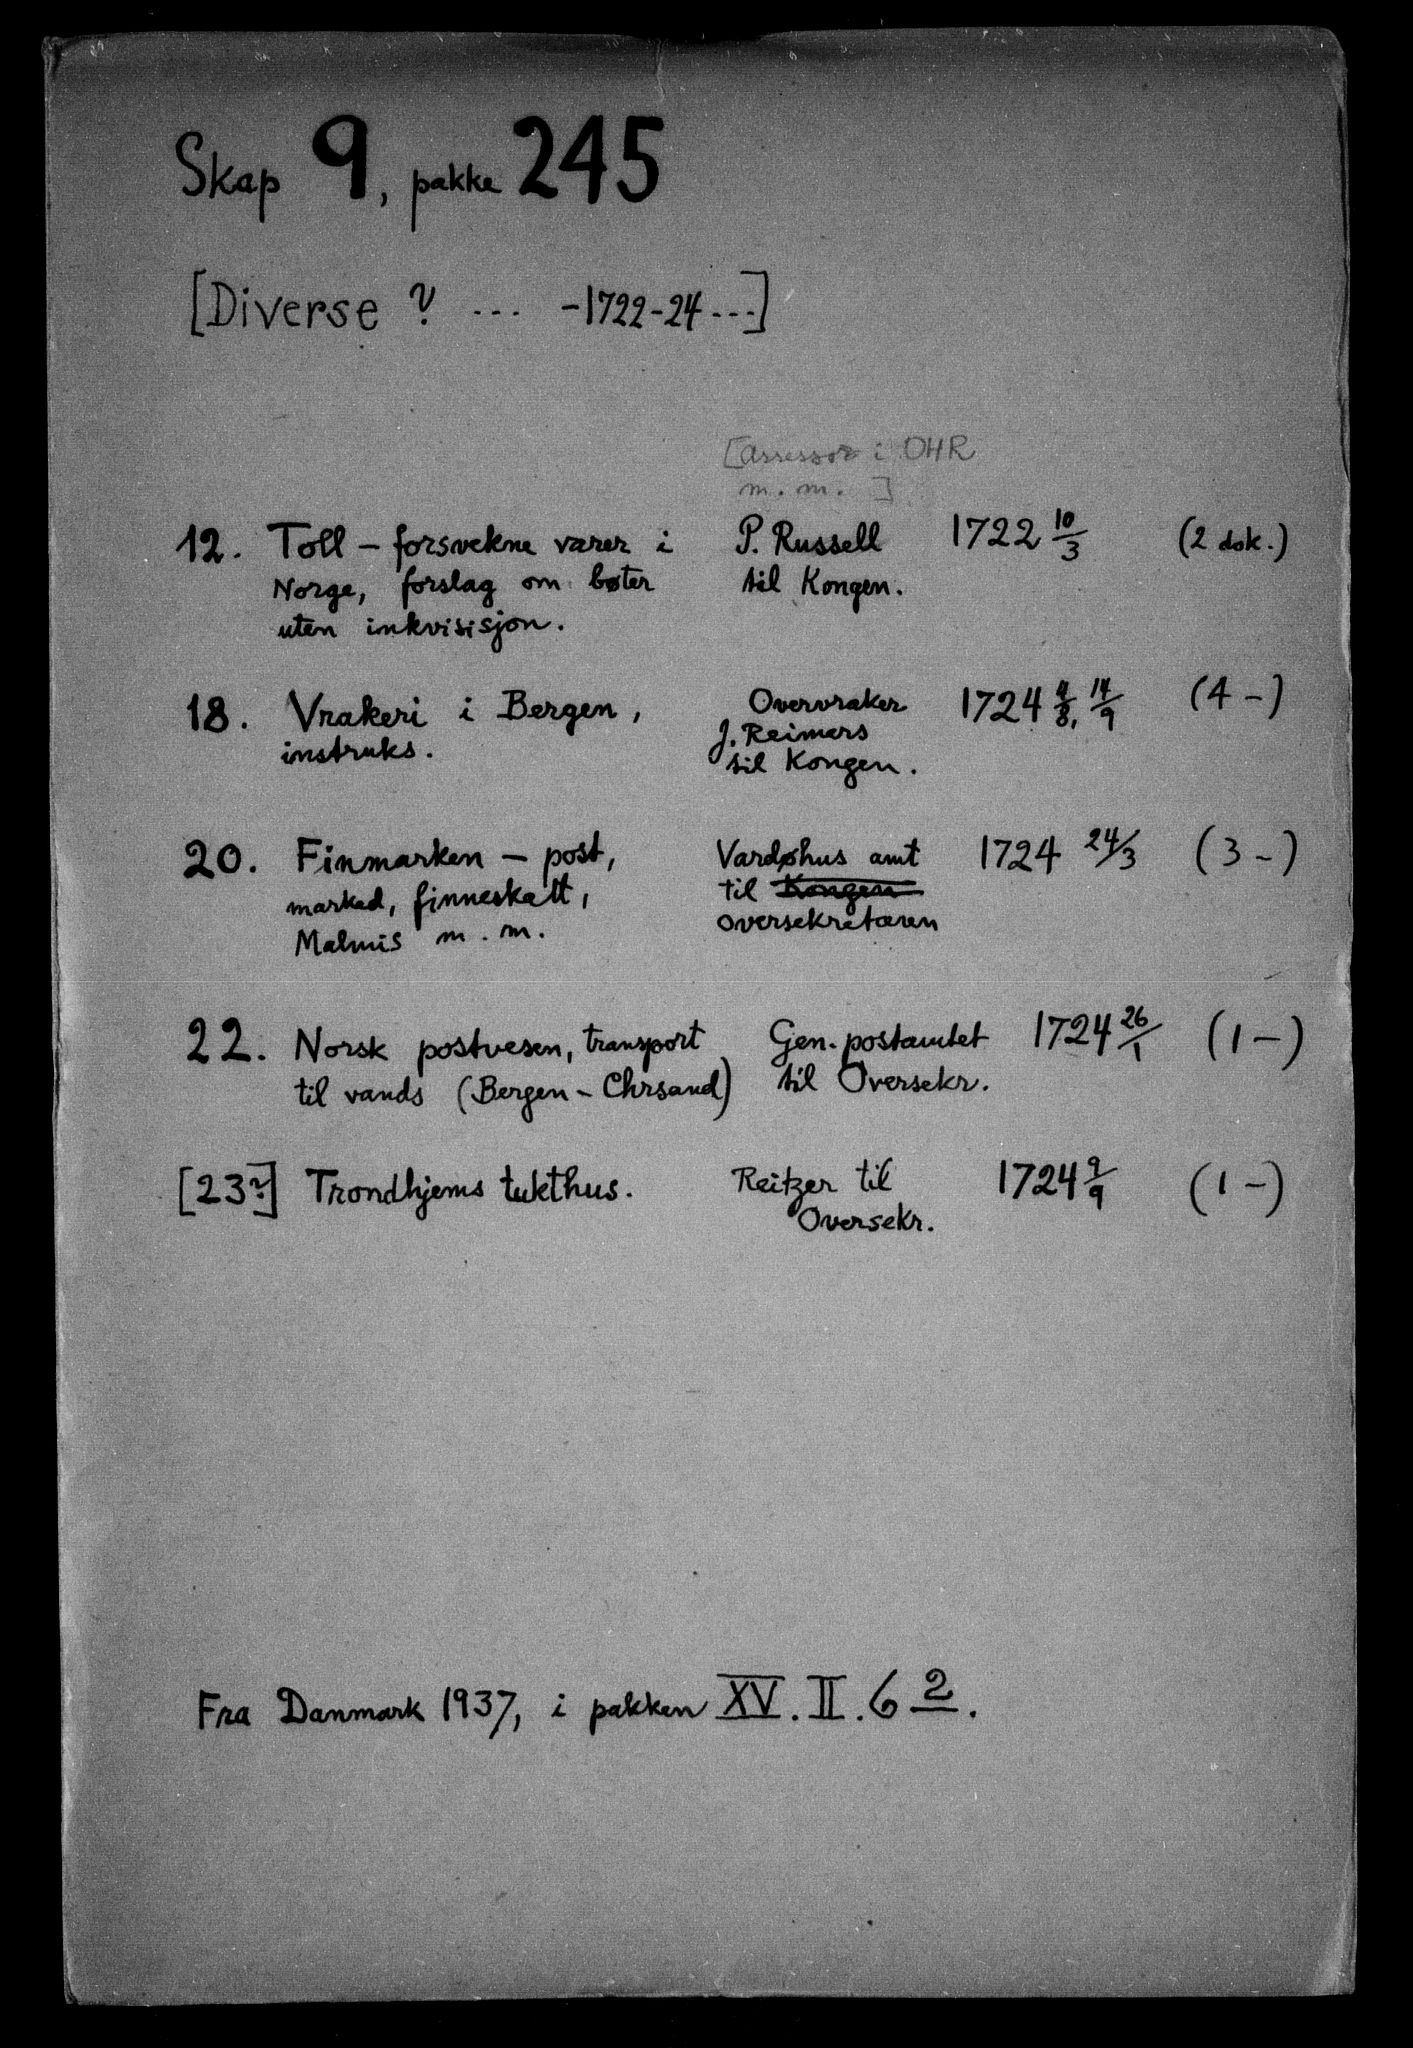 Skap 9, pakke 245
[Diverse ? ... -1722-24...]
[assessor i OHR
m. m. ]
12. Toll - forsvekne varer i P. Russell 1722 10/3 (2 dok.)
Norge, forslag om bøter til Kongen.
uten inkvisisjon.
18. Vrakeri i Bergen, Overvraker 1724 9/8, 14/9 (4 -)
instruks. J. Reimers
til Kongen.
20. Finmarken - post, Vardøhus amt 1724 24/3 (3 -)
marked, finneskatt, til Kongen
Malmis m. m. oversekretæren
22. Norsk postvesen, transport Gen. postamtet 1724 26/1 (1 -)
til vands (Bergen - Chrsand) til Oversekr.
[23?] Trondhjems tukthus. Reitzer til 1724 9/9 (1 -)
Oversekr.
Fra Danmark 1937, i pakken XV. II. 6 2.